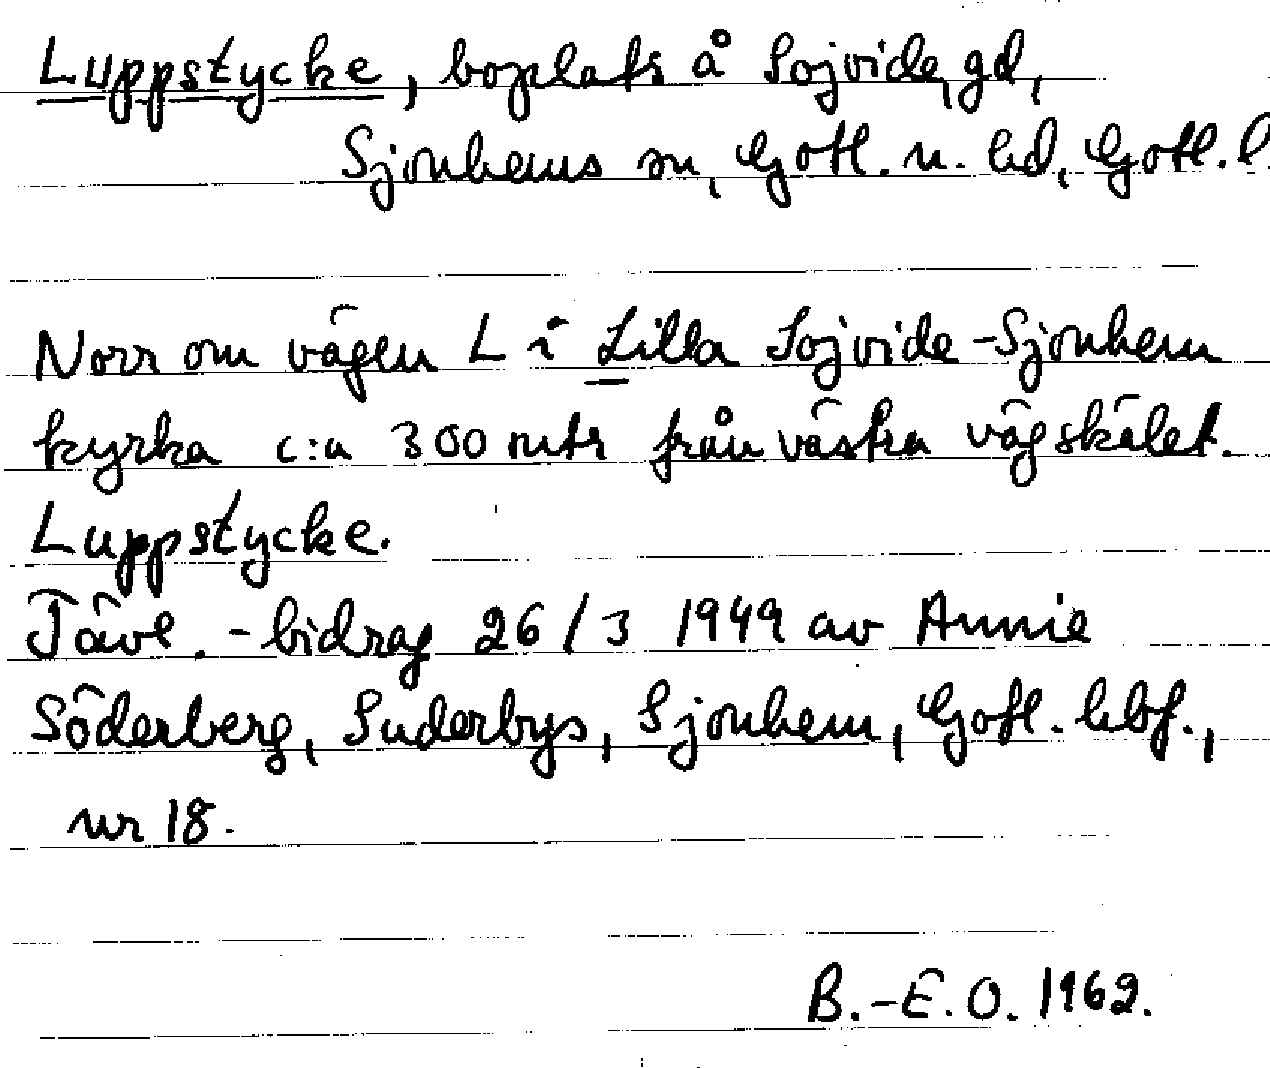 Luppstycke, boplats å Sojvide gd,
Sjonhems sn, Gotl. n. hd, Gotl. l.
Norr om vägen L i Lilla Sojvide-Sjonhem
kyrka c:a 300 mtr från västra vägskälet.
Luppstycke.
Tävl.-bidrag 26/3 1949 av Annie
Söderberg, Suderbys, Sjonhem, Gotl. hbf.,
nr 18.
B.-E.O. 1962.